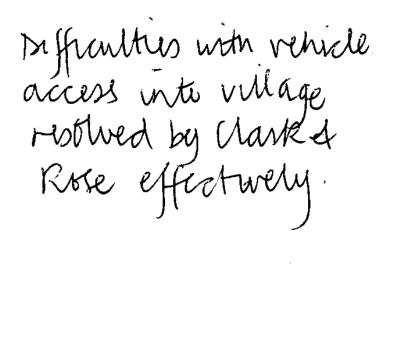 Difficulties with vehicle
access into village
resolved by Clark &
Rose effectively.